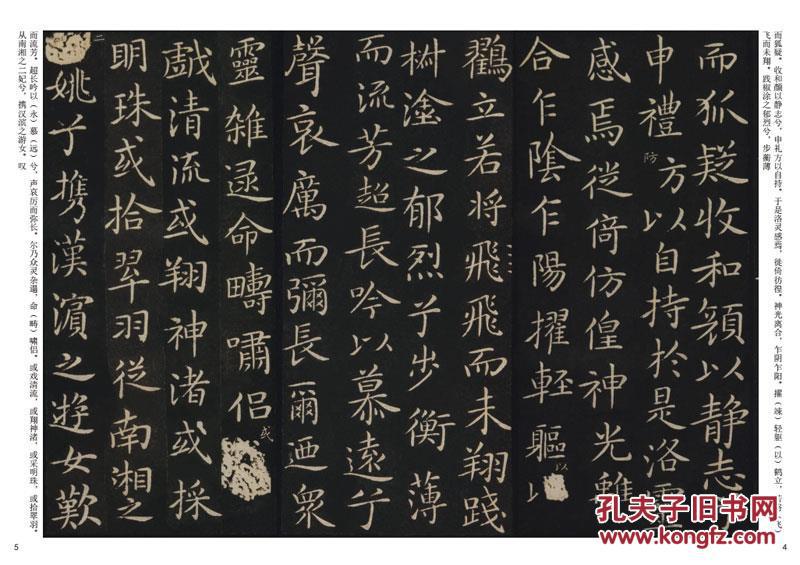 而狐疑。收和颜以静志兮，申礼方以自持。于是洛灵感焉，徙倚彷徨。神光离合，乍阴乍阳。擢（竦）轻躯（以）鹤立，
飞而未翔。践椒涂之郁烈兮，步蘅薄
而狐疑收和顔以静志
申禮方以自持扵是洛靈
防
感焉徙倚仿偟神光離
合乍陰乍陽擢輕軀以
以
鸛立若将飛飛而未翔踐
樹塗之郁烈兮步衡薄
而流芳超長吟以慕遠兮
聲哀厲而彌長爾迺衆
靈雜遝命疇嘯侣
或
戯清流或翔神渚或採
明珠或拾翠羽從南湘之
二
姚兮携漢濱之遊女歎
而流芳。超长吟以（永）慕（远）兮，声哀厉而弥长。尔乃众灵杂遝，命（畴）啸侣。或戏清流，或翔神渚，或采明珠，或拾翠羽。
从南湘之二妃兮，携汉滨之游女。叹
5
4
孔夫子旧书网
www.kongfz.com